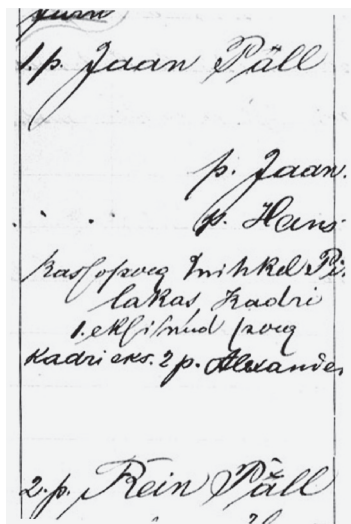 Jurn
1. p. Jaan Päll
p. Jaan.
p. Hans
kassopoeg Mihkel Pi-
lakas Kadri
1. eksisinud poeg
Kadri eks. 2 p. Alexander
2. p. Rein Päll